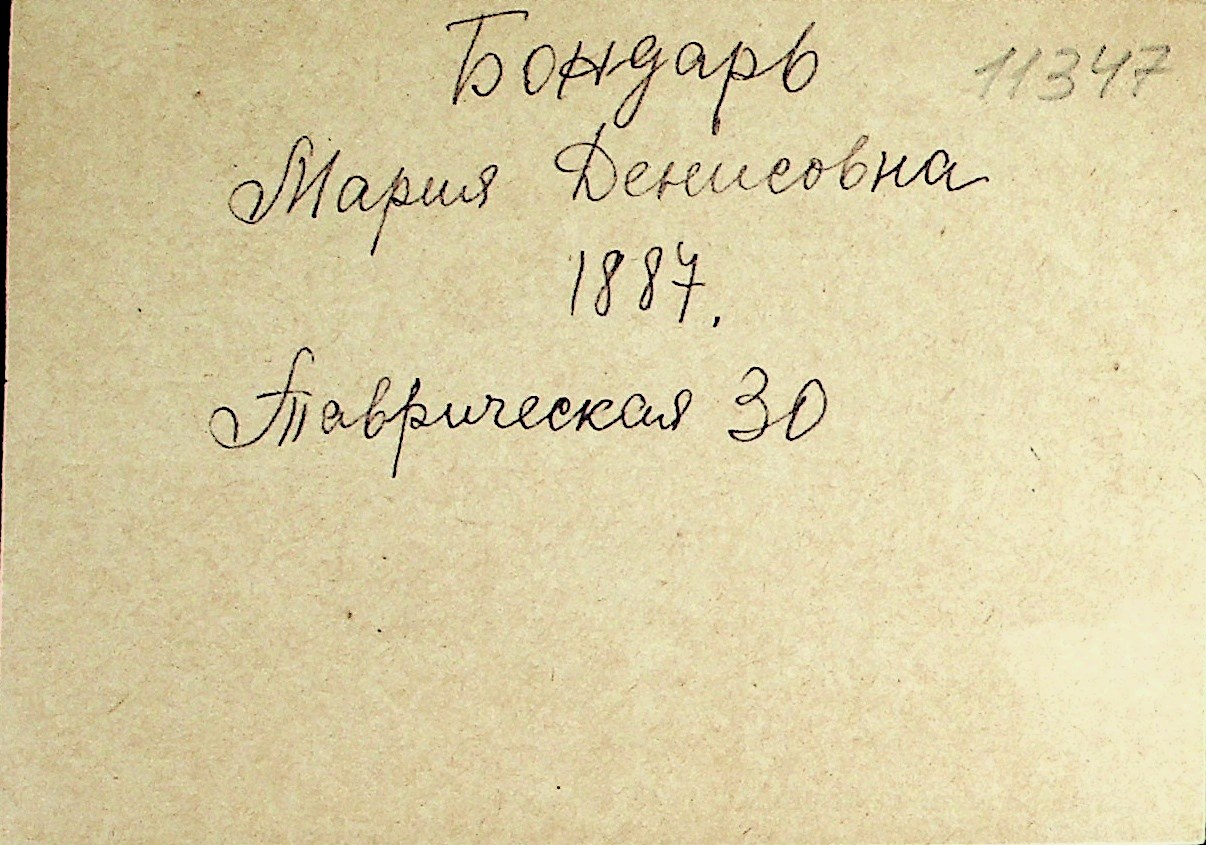 Бондарь 11347
Мария Денисовна
1887.
Таврическая 30